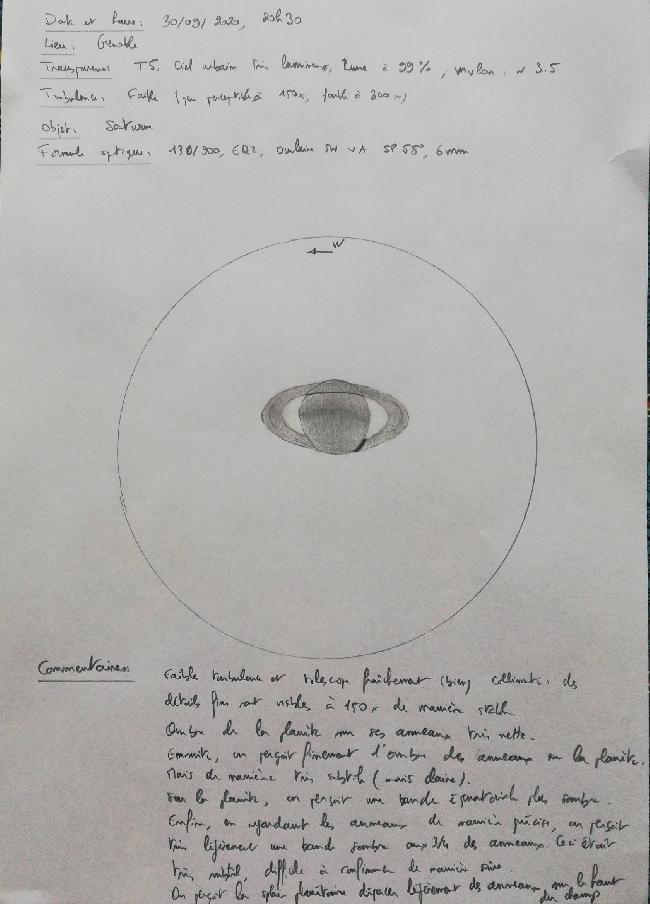 Date et heure: 30/09/2020, 20h30
Lieu: Grenoble
Transparence: T5, Ciel urbain très lumineux, Lune à 99%, mvlon: ~ 3.5
Turbulence: Faible (peu perceptible à 150x, faible à 300x)
Objet: Saturne
Formule optique: 130/900, EQ2, Oculaire SW SP 58°, 6mm
W
Commentaires:
Faible turbulence et télescope fraîchement (bien) collimaté: des
détails fins sont visibles à 150x de manière stable.
Ombre de la planète sur ses anneaux très nette.
Ensuite, on perçoit finement l'ombre des anneaux sur la planète.
Mais de manière très subtile (mais claire).
Sur la planète, on perçoit une bande équatoriale plus sombre.
Enfin, en regardant les anneaux de manière précise, on perçoit
très légèrement une bande sombre aux 3/4 des anneaux. Ceci était
très subtil, difficile à confirmer de manière sûre.
On perçoit la sphère planétaire dépasser légèrement des anneaux, sur le haut
du champ